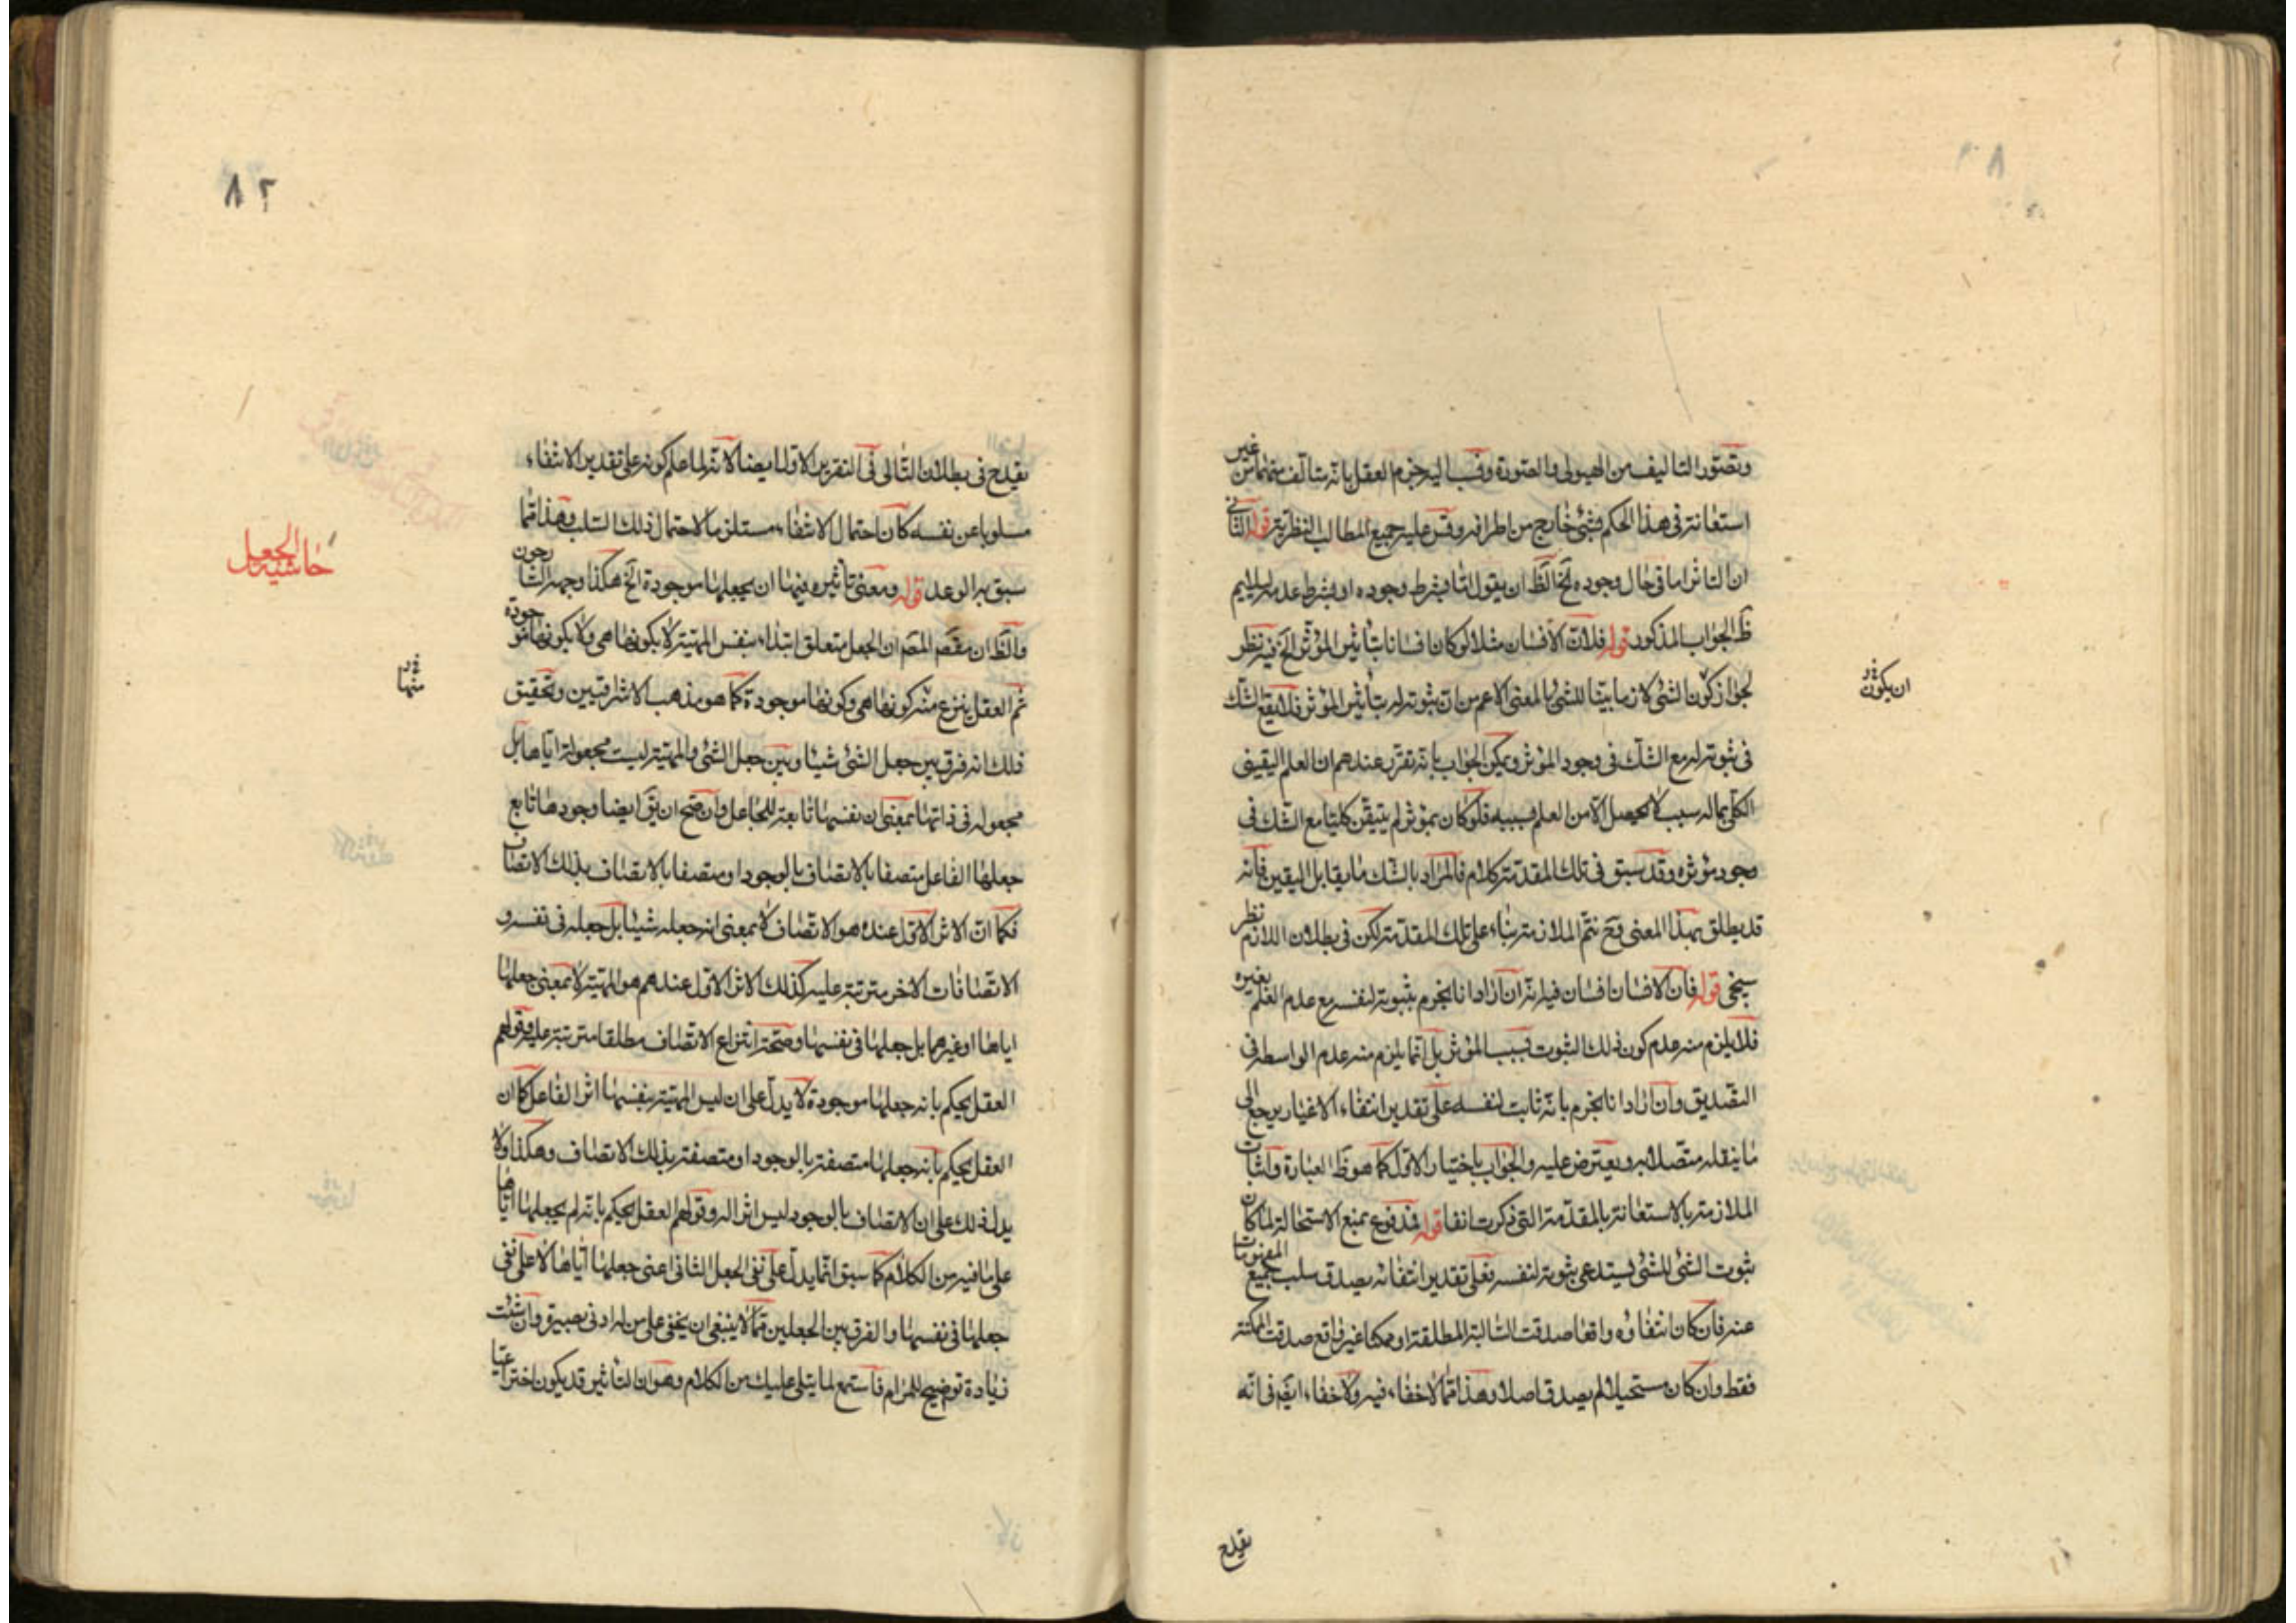 وتصور التاليف من الهيولى والصورة ونسب اليه جزم العقل بانه متالف منهما من غير
استعانة فى هذا الحكم بشئ خارج من اطرافه وقس عليه جميع المطالب النظرية قوله الثانى
ان التاثر اما فى حال وجوده الخ الظ ان يقول التا بشرط وجوده او بشرط عدمه ليلايم
ظ الجواب المذكور قوله فلان الانسان مثلا لو كان انسانا بتاثير المؤثر الخ فيه نظر
لجواز كون الشئ لازما بينا للشئ بالمعنى الاعم من ان ثبوته له بتاثير المؤثر فلا يقع الشك
ان يكون
فى ثبوته له مع الشك فى وجود المؤثر ويمكن الجواب بانه تقرر عندهم ان العلم اليقينى
الكلى بماله سبب لا يحصل الا من العلم بسببه فلو كان بمؤثر لم يتيقن كليا مع الشك فى
وجود مؤثره وقد سبق فى تلك المقدمة كلام فالمراد بالشك ما يقابل اليقين فانه
قد يطلق بهذا المعنى فح تتم الملازمة بناء على تلك المقدمة لكن فى بطلان اللازم نظر
سيجئ قوله فان الانسان انسان فيه انه ان اراد انا نجزم بثبوته لنفسه مع عدم العلم بغيره
فلا يلزم منه عدم كون ذلك الثبوت بسبب المؤثر بل انما يلزم منه عدم الواسطة فى
التصديق وان اراد انا نجزم بانه ثابت لنفسه على تقدير انتفاء الاغيار يرجع الى
ما ينقله متصلا به ويعترض عليه والجواب باختيار الاول كما هو ظ العبارة واثبات
الملازمة بالاستعانة بالمقدمة التى ذكرت انفا قوله فمدفوع بمنع الاستحالة لما كان
ثبوت الشئ للشئ يستدعى ثبوته لنفسه فعلى تقدير انتفائه يصدق سلب جميع المفهومات
عنه فان كان انتفاؤه واقعا صدقت السالبة المطلقة او ممكنا غير واقع صدقت الممكنة
فقط وان كان مستحيلا لم يصدق اصلا وهذا مما لا خفاء فيه ولا خفاء ايضا فى انه
يقدح
٨٢
يقدح فى بطلان التالى فى التقرير الاول ايضا لانه لما علم كونه على تقدير الانتفاء
مسلوبا عن نفسه كان احتمال الانتفاء مستلزما لاحتمال ذلك السلب وهذا مما
حاشية الجعل
سبق به الوعد قوله ومعنى تاثيره فيها ان يجعلها موجودة الخ هكذا وجهه الشارحون
والظ ان مقصد المصم ان الجعل متعلق ابتداء بنفس المهية لا بكونها هى ولا بكونها موجودة
ثم العقل ينزع منه كونها هى وكونها موجودة كما هو مذهب الاشراقيين وتحقيق
منها
ذلك انه فرق بين جعل الشئ شيئا وبين جعل الشئ والمهية ليست مجعولة اياها بل
مجعولة فى ذاتها بمعنى ان نفسها تابعة للجاعل وان صح ان يق ايضا وجودها تابع
جعلها الفاعل متصفا بالاتصاف بالوجود او متصفا بالاتصاف بذلك الاتصاف
فكما ان الاثر الاول عنده هو الاتصاف لا بمعنى انه جعله شيئا بل جعله فى نفسه و
الاتصافات الاخر مترتبة عليه كذلك الاثر الاول عندهم هو المهية لا بمعنى جعلها
اياها او غيرها بل جعلها فى نفسها وصحة انتزاع الاتصاف مطلقا مترتبة عليه وقولهم
العقل يحكم بانه جعلها موجودة لا يدل على ان ليس المهية بنفسها اثر الفاعل كما ان
العقل يحكم بانه جعلها متصفة بالوجود او متصفة بذلك الاتصاف وهكذا ولا
يدل ذلك على ان الاتصاف بالوجود ليس اثرا له وقولهم العقل يحكم بانه لم يجعلها اياها
على ما فيه من الكلام كما سبق انما يدل على نفى الجعل الثانى اعنى جعلها اياها لا على نفى
جعلها فى نفسها والفرق بين الجعلين مما لا ينبغى ان يخفى على من له ادنى بصيرة وان شئت
زيادة توضيح للمرام فاستمع لما يتلى عليك من الكلام وهو ان التاثير قد يكون اختراعيا